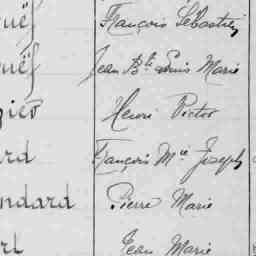 uëf François Sébastien
uëf Jean Bte Louis Marie
zier Henri Victor
rd François Mie Joseph
ndard Pierre Marie
rt Jean Marie